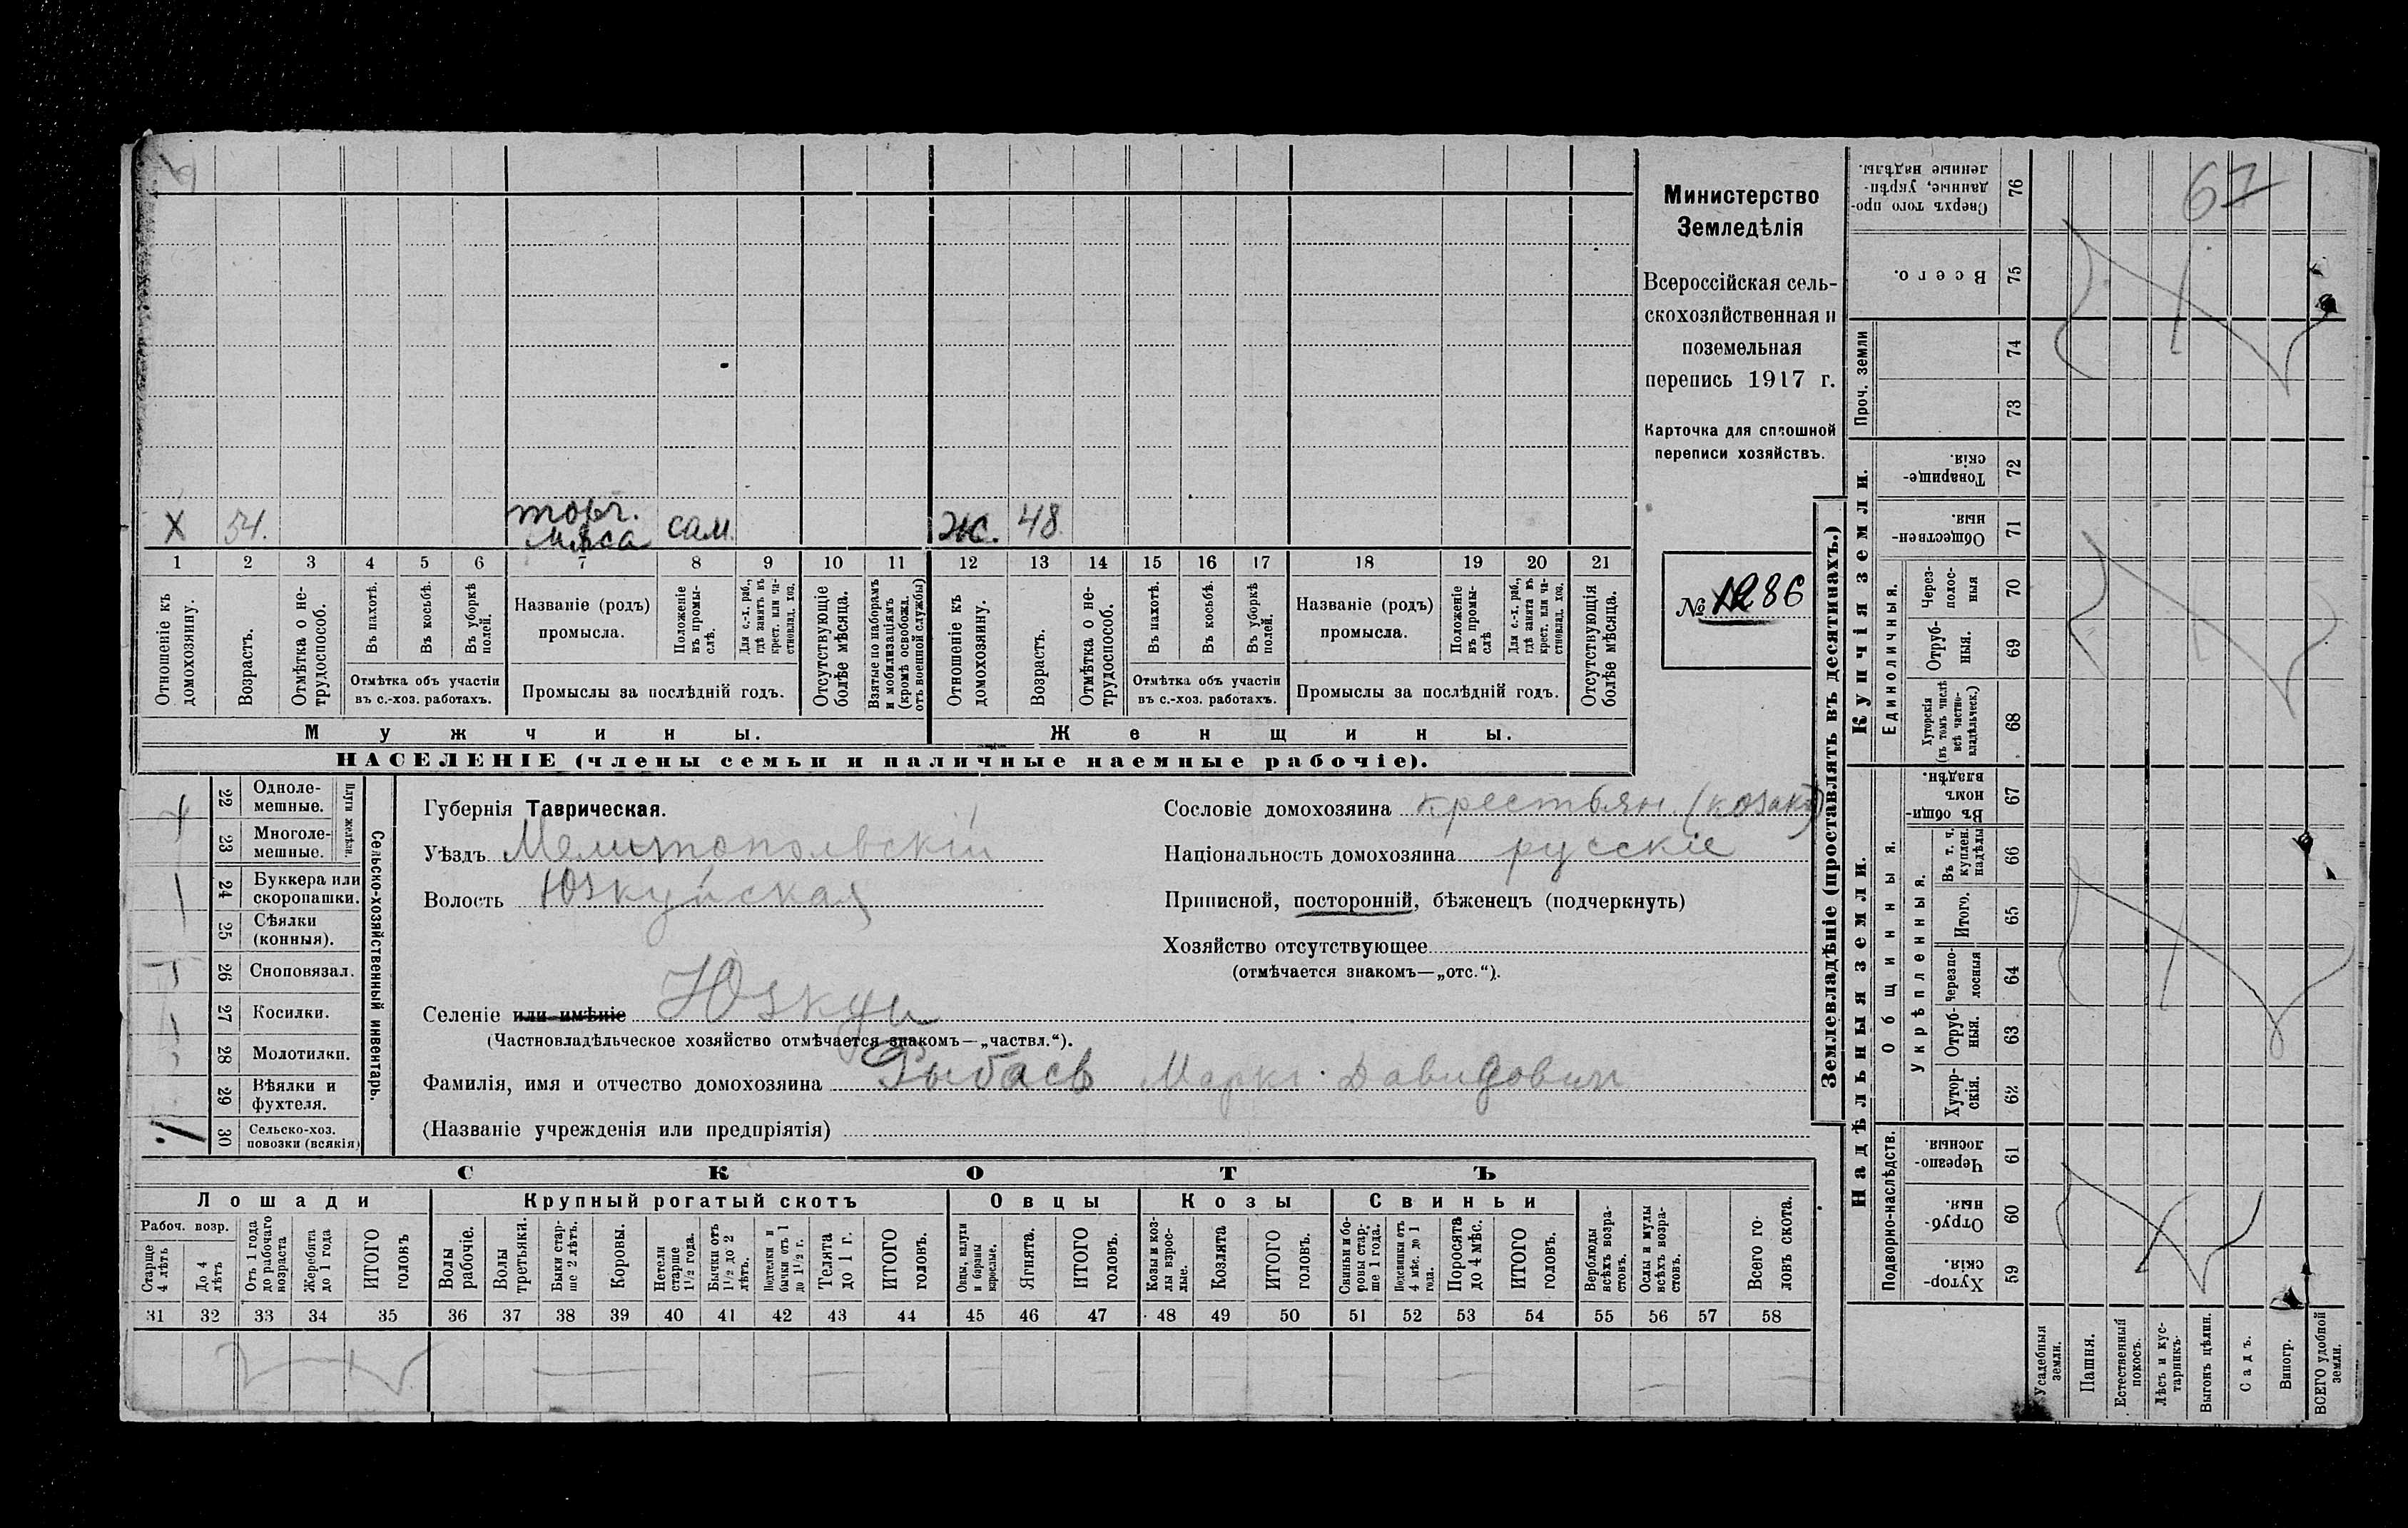 67
Министерство
Земледѣлія
Всероссійская сель-
скохозяйственная и
поземельная
перепись 1917 г.
Карточка для сплошной
переписи хозяйствъ.
№ 1286
Х 54. торг. мяса сам. Ж. 48
1 2 3 4 5 6 7 8 9 10 11 12 13 14 15 16 17 18 19 20 21
Отношеніе къ домохозяину.
Возрастъ.
Отмѣтка о не-трудоспособ.
Въ пахотѣ.
Въ косьбѣ.
Въ уборкѣ полей.
Отмѣтка объ участіи въ с.-хоз. работахъ.
Названіе (родъ) промысла.
Положеніе въ промы-слѣ.
Для с.-х. раб., гдѣ занятъ въ крест. или ча-стновлад. хоз.
Промыслы за послѣдній годъ.
Отсутствующіе болѣе мѣсяца.
Взятые по наборамъ и мобилизаціямъ (кромѣ освобожд. отъ военной службы)
Отношеніе къ домохозяину.
Возрастъ.
Отмѣтка о не-трудоспособ.
Въ пахотѣ.
Въ косьбѣ.
Въ уборкѣ полей.
Отмѣтка объ участіи въ с.-хоз. работахъ.
Названіе (родъ) промысла.
Положеніе въ промы-слѣ
Для с.-х. раб., гдѣ занята въ крест. или ча-стновлад. хоз.
Промыслы за послѣдній годъ.
Отсутствующія болѣе мѣсяца.
Мужчины. Женщины.
НАСЕЛЕНІЕ (члены семьи и наличные наемные рабочіе).
22 Одноле-мешные.
23 Многоле-мешные.
Плуги желѣзн.
24 Буккера или скоропашки.
25 Сѣялки (конныя).
26 Сноповязал.
27 Косилки.
28 Молотилки.
29 Вѣялки и фухтеля.
30 Сельско-хоз. повозки (всякія)
Сельско-хозяйственный инвентарь.
Губернія Таврическая.
Уѣздъ Мелитопольскій
Волость Юзкуйская
Сословіе домохозяина крестьян. (козакъ)
Національность домохозяина русскіе
Приписной, посторонній, бѣженецъ (подчеркнуть)
Хозяйство отсутствующее
(отмѣчается знакомъ—„отс.“).
Селеніе или имѣніе Юзкуи
(Частновладѣльческое хозяйство отмѣчается знакомъ—„частвл.“).
Фамилія, имя и отчество домохозяина Рыбасъ Марко Давидович
(Названіе учрежденія или предпріятія)
СКОТЪ
Лошади Крупный рогатый скотъ Овцы Козы Свиньи
Рабоч. возр.
Старше 4 лѣтъ
До 4 лѣтъ
Отъ 1 года до рабочаго возраста
Жеребята до 1 года
ИТОГО головъ
Волы рабочіе.
Волы третьяки.
Быки стар-ше 2 лѣтъ.
Коровы.
Нетели старше 1½ года.
Бычки отъ 1½ до 2 лѣтъ.
Подтелки и бычки отъ 1 до 1½ г.
Телята до 1 г.
ИТОГО головъ.
Овцы, валухи и бараны взрослые.
Ягнята.
ИТОГО головъ.
Козы и коз-лы взрос-лые.
Козлята
ИТОГО головъ.
Свиньи и бо-ровы стар-ше 1 года.
Подсвинки отъ 4 мѣс. до 1 года.
Поросята до 4 мѣс.
ИТОГО головъ.
Верблюды всѣхъ возра-стовъ.
Ослы и мулы всѣхъ возра-стовъ.
Всего го-ловъ скота.
31 32 33 34 35 36 37 38 39 40 41 42 43 44 45 46 47 48 49 50 51 52 53 54 55 56 57 58
Землевладѣніе (проставлять въ десятинахъ.)
Надѣльныя земли. Купчія земли. Проч. земли
Подворно-наслѣдств.
Общинныя.
Укрѣпленныя.
Единоличныя.
59 Хутор-скія.
60 Отруб-ныя.
61 Черезпо-лосныя.
62 Хутор-скія.
63 Отруб-ныя.
64 Черезпо-лосныя
65 Итого.
66 Въ т. ч. куплен. надѣлы
67 Въ общин-номъ владѣн.
68 Хуторскія (въ томъ числѣ всѣ частно-владѣльческ.)
69 Отруб-ныя.
70 Через-полос-ныя
71 Обществен-ныя.
72 Товарище-скія.
73
74
75 Всего.
76 Сверхъ того про-данные, укрѣп-ленные надѣлы.
Усадебныя земли.
Пашня.
Естественный покосъ.
Лѣсъ и кус-тарникъ.
Выгонъ цѣлин.
Садъ.
Виногр.
ВСЕГО удобной земли.